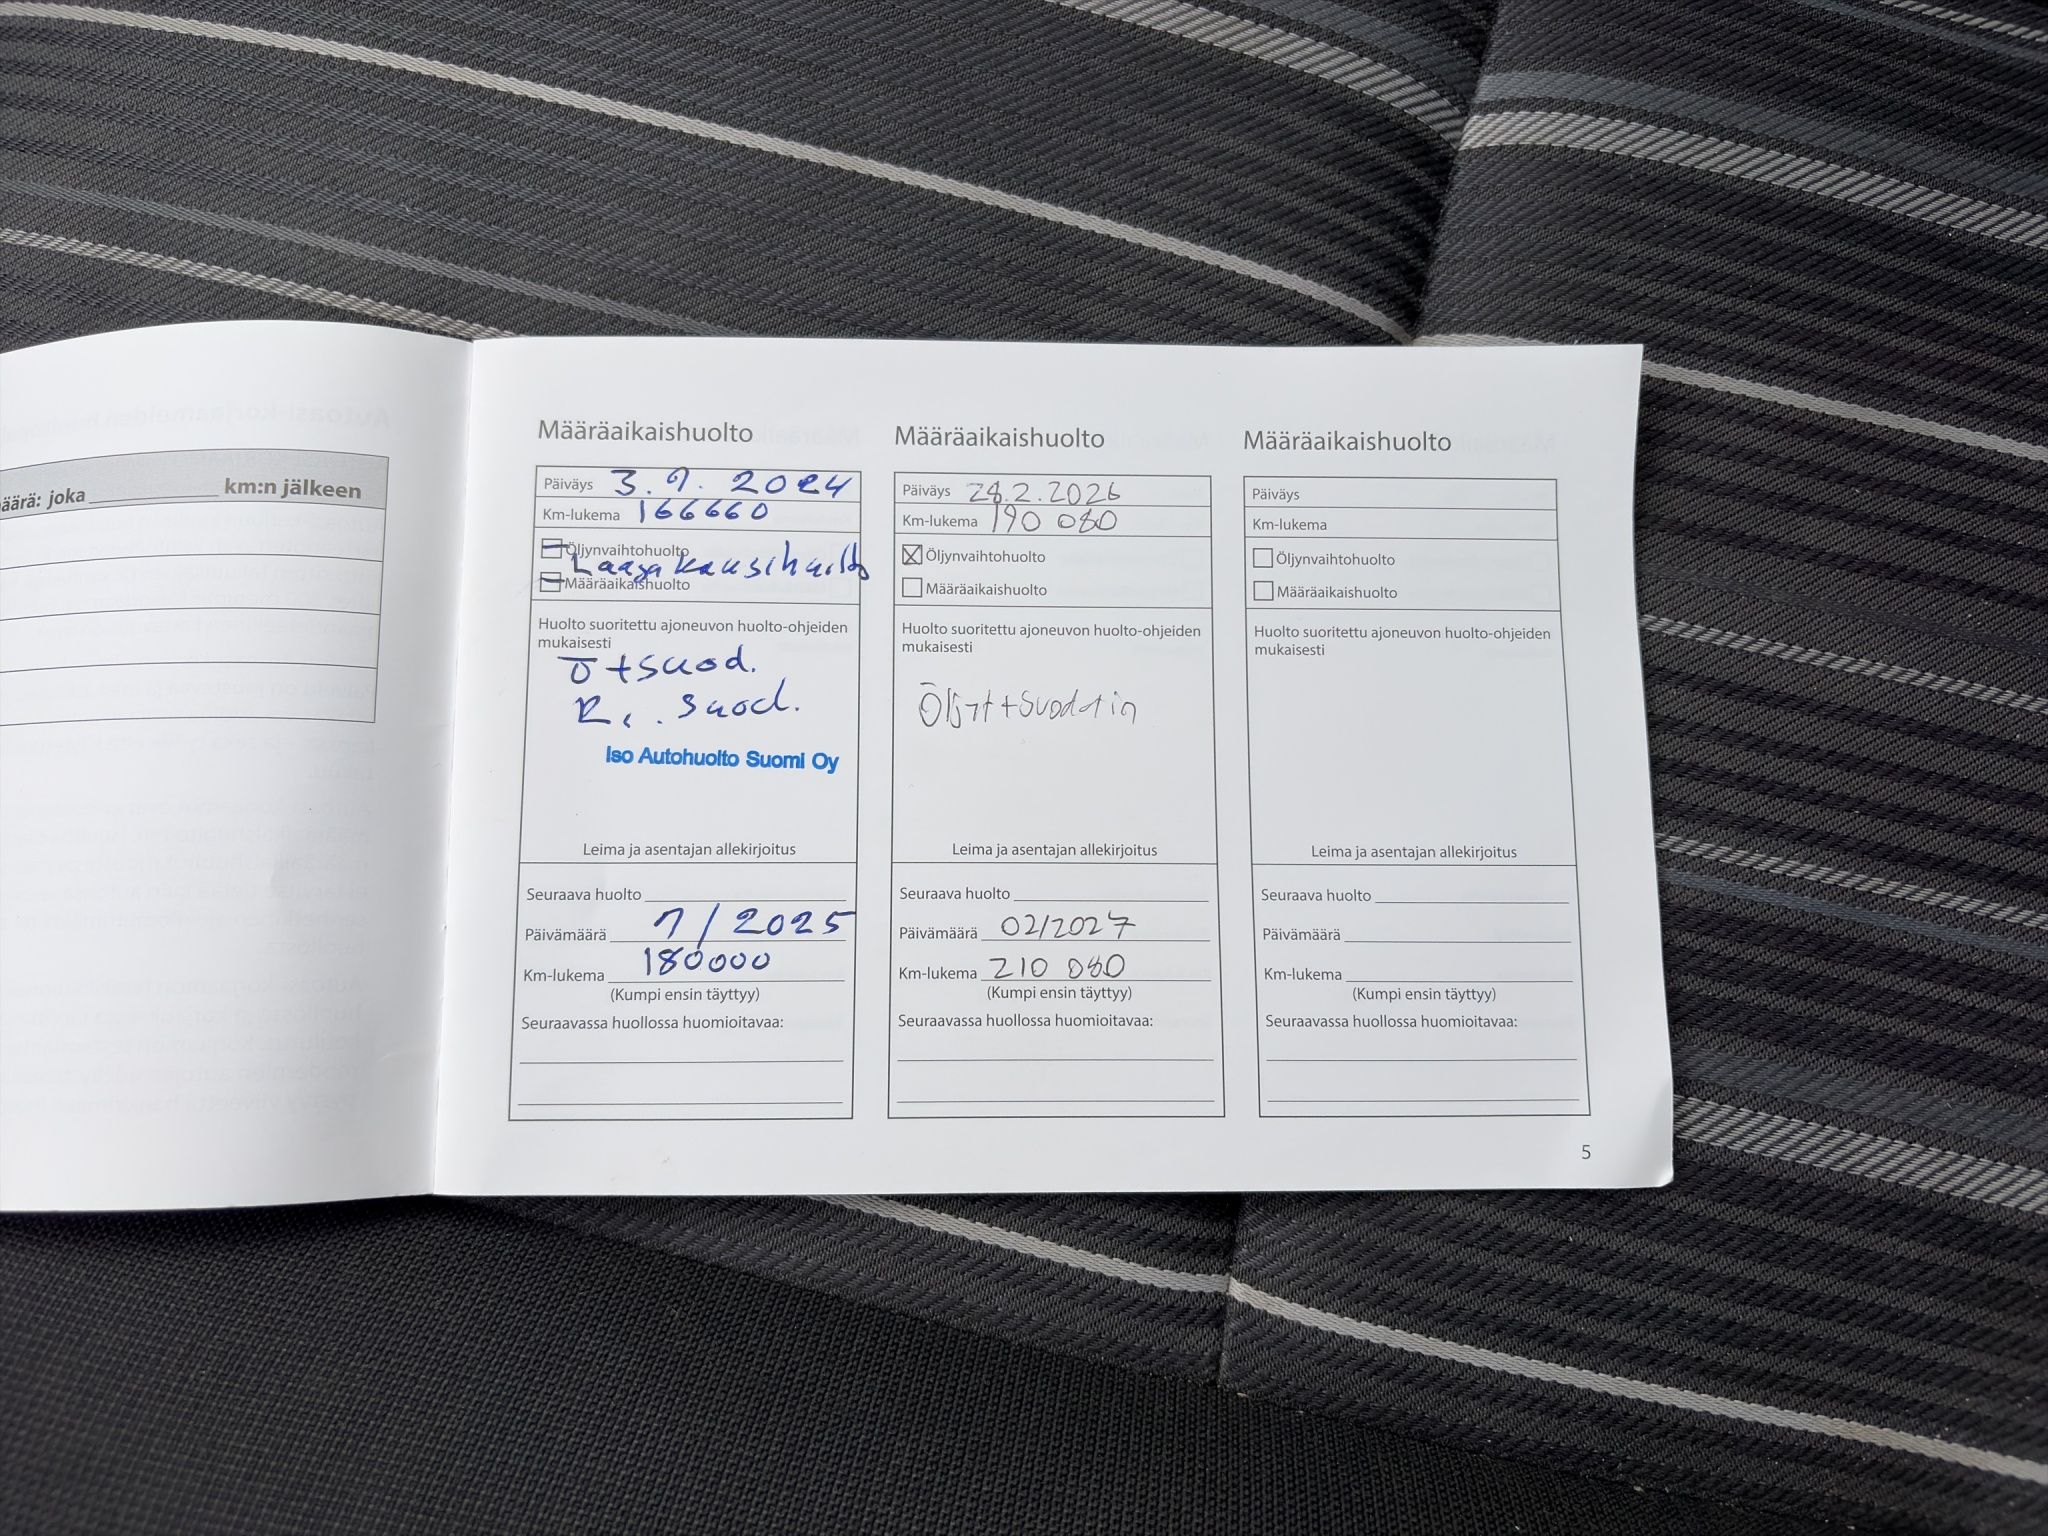 äärä: joka ________ km:n jälkeen
Määräaikaishuolto
Päiväys 3.9.2024
Km-lukema 166660
Öljynvaihtohuolto
Laaja kausihuolto
Määräaikaishuolto
Huolto suoritettu ajoneuvon huolto-ohjeiden
mukaisesti
Ö + suod.
R. . suod.
Iso Autohuolto Suomi Oy
Leima ja asentajan allekirjoitus
Seuraava huolto
Päivämäärä 9/2025
Km-lukema 180000
(Kumpi ensin täyttyy)
Seuraavassa huollossa huomioitavaa:
Määräaikaishuolto
Päiväys 28.2.2026
Km-lukema 190 080
Öljynvaihtohuolto
Määräaikaishuolto
Huolto suoritettu ajoneuvon huolto-ohjeiden
mukaisesti
Öljyt + Suodatin
Leima ja asentajan allekirjoitus
Seuraava huolto
Päivämäärä 02/2027
Km-lukema 210 080
(Kumpi ensin täyttyy)
Seuraavassa huollossa huomioitavaa:
Määräaikaishuolto
Päiväys
Km-lukema
Öljynvaihtohuolto
Määräaikaishuolto
Huolto suoritettu ajoneuvon huolto-ohjeiden
mukaisesti
Leima ja asentajan allekirjoitus
Seuraava huolto
Päivämäärä
Km-lukema
(Kumpi ensin täyttyy)
Seuraavassa huollossa huomioitavaa:
5